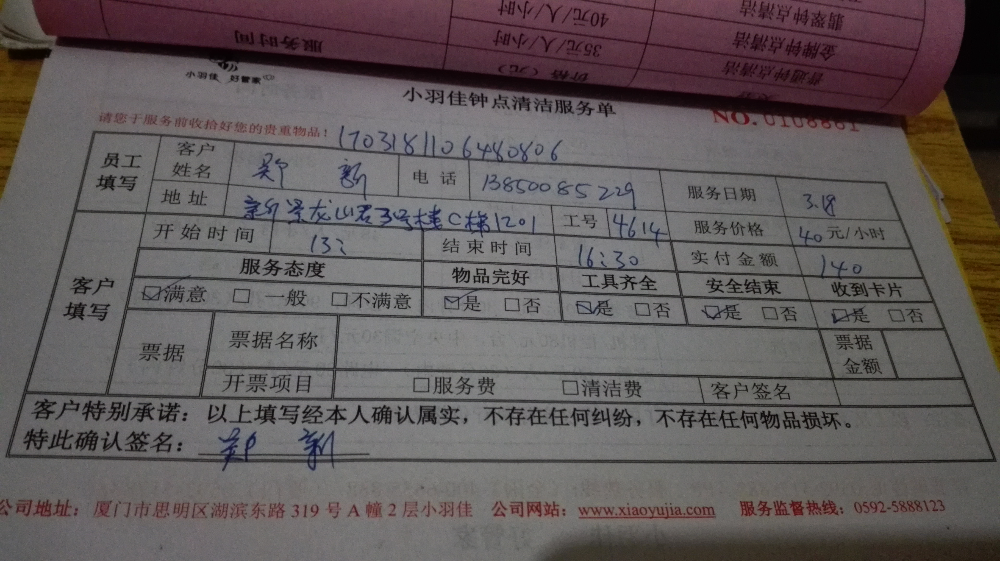 服务时间
40元/人/小时 翡翠钟点清洁
35元/人/小时 金牌钟点清洁
价格（元） 普通钟点清洁
小羽佳 好管家
小羽佳钟点清洁服务单
请您于服务前收拾好您的贵重物品！ NO. 0108861
1703181106480806
员工填写 客户姓名 郑 新 电话 13850085229 服务日期 3.18
地址 3号楼C梯1201 工号 4614 服务价格 40 元/小时
客户填写 开始时间 13: 结束时间 16:30 实付金额 140
服务态度 物品完好 工具齐全 安全结束 收到卡片
☑满意 □一般 □不满意 ☑是 □否 ☑是 □否 ☑是 □否 ☑是 □否
票据 票据名称 票据金额
开票项目 □服务费 □清洁费 客户签名
客户特别承诺：以上填写经本人确认属实，不存在任何纠纷，不存在任何物品损坏。
特此确认签名： 郑 新
公司地址：厦门市思明区湖滨东路 319 号 A 幢 2 层小羽佳 公司网站：www.xiaoyujia.com 服务监督热线：0592-5888123